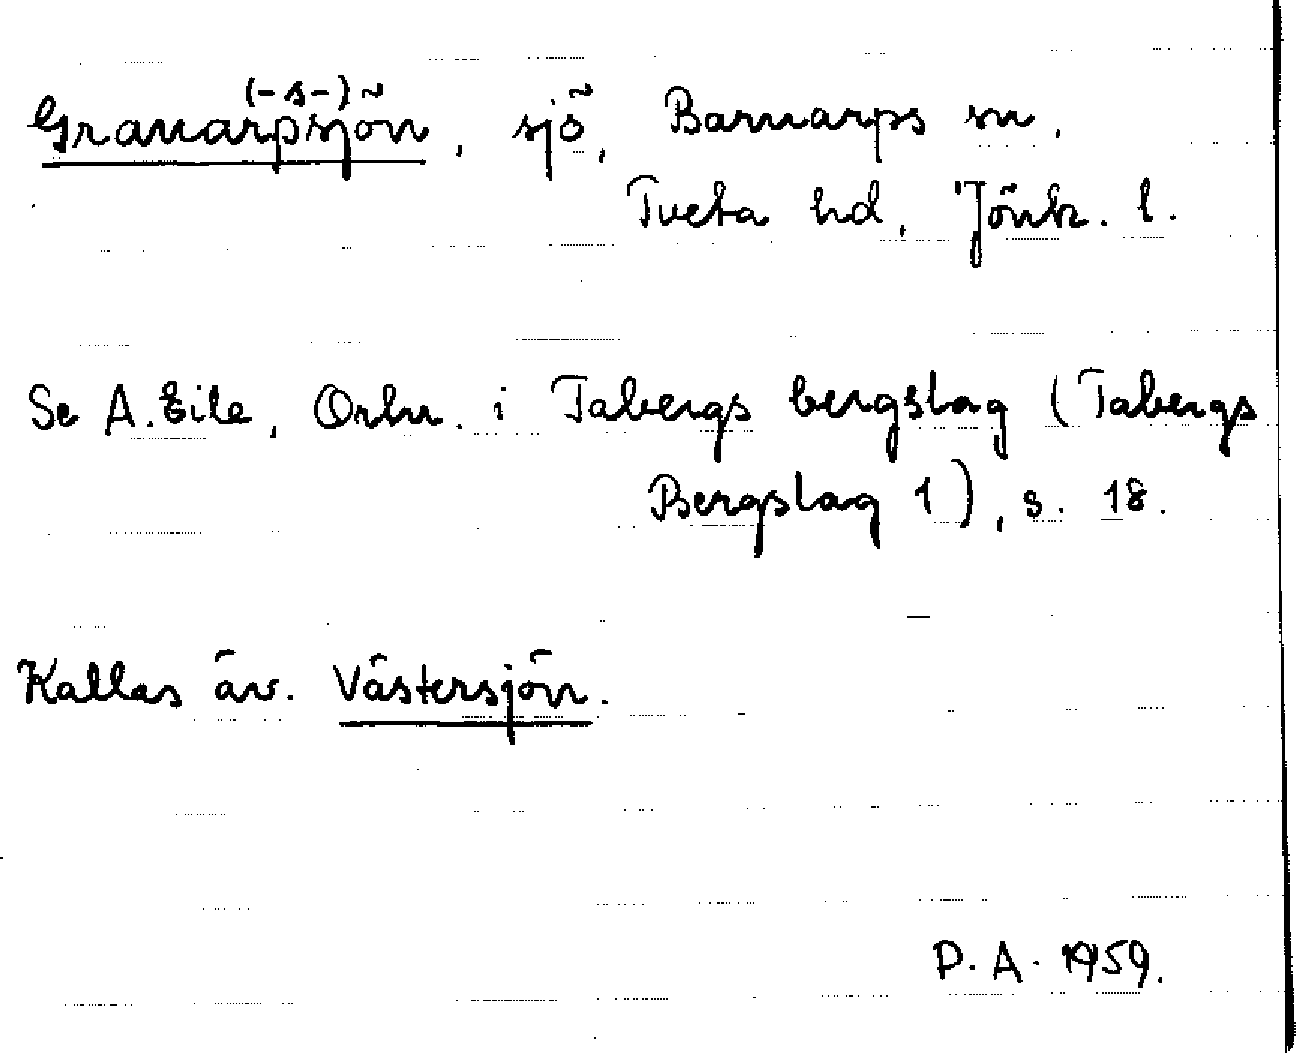 (-s-)
Granarpsjön, sjö, Barnarps sn,
Tveta hd, Jönk. l.
Se A. Eile, Orbn. i Tabergs bergslag (Tabergs
Bergslag 1), s. 18.
Kallas äv. Västersjön.
P. A. 1959.